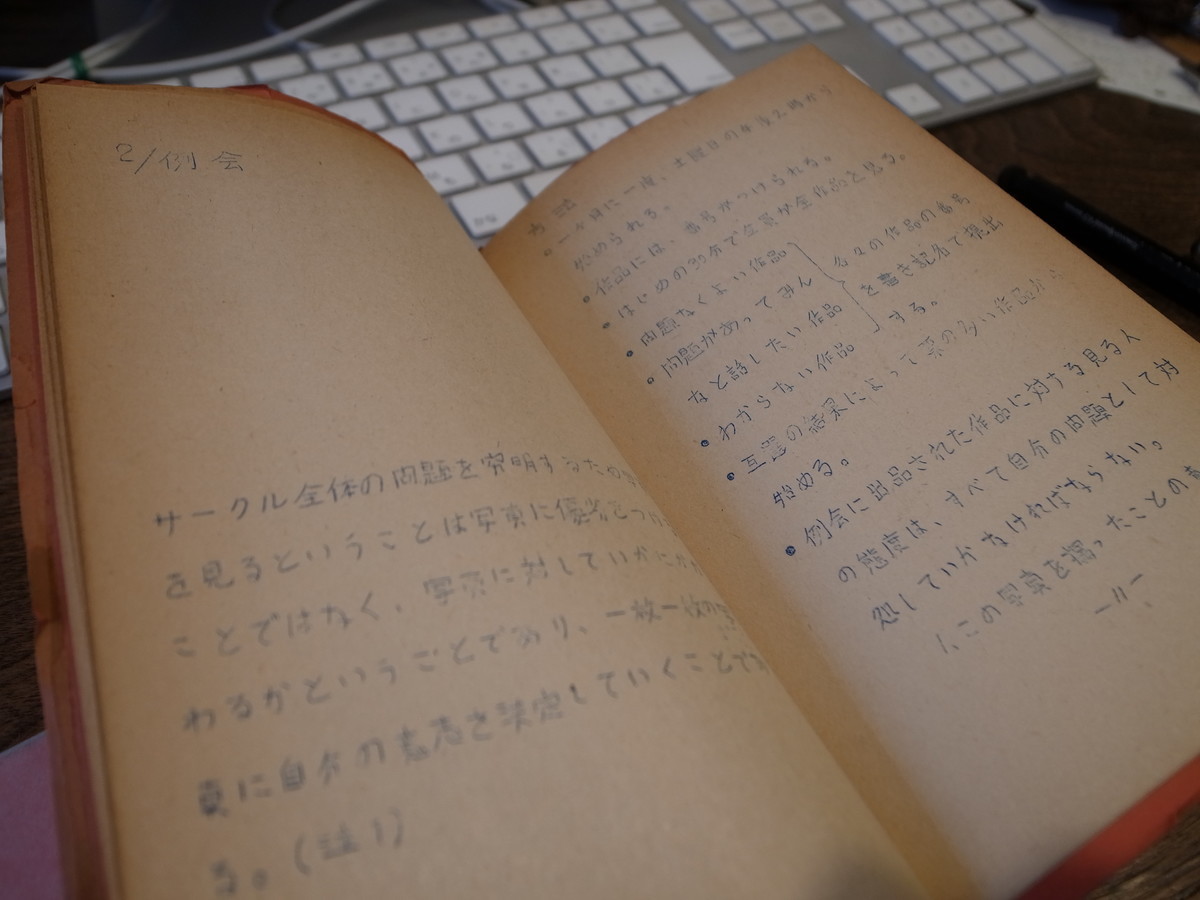 2/例会
サークル全体の問題を究明するための
を見るということは写真に優劣をつけ
ことではなく、写真に対していかにか
わるかということであり、一枚一枚の写
真に自分の意志を決定していくことで
る。(註1)
方法
・一ヶ月に一度、土曜日の午後2時から
始められる。
・作品には、番号がつけられる。
・はじめの30分で全員が全作品を見る。
・問題なくよい作品
・問題があってみん
なと話したい作品
・わからない作品
各々の作品の番号
を書き記名で提出
する。
・互選の結果によって票の多い作品から
始める。
・例会に出品された作品に対する見る人
の態度は、すべて自分の問題として対
処していかなければならない。
1.この写真を撮ったことの